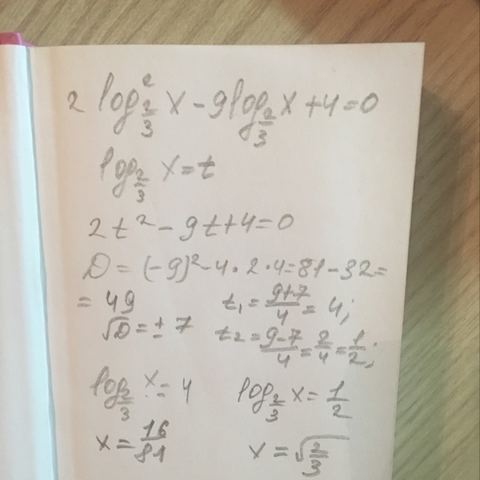 2 log²_{2/3} x - 9 log_{2/3} x + 4 = 0
log_{2/3} x = t
2t² - 9t + 4 = 0
D = (-9)² - 4 · 2 · 4 = 81 - 32 =
= 49 t₁ = (9+7)/4 = 4;
√D = ± 7 t₂ = (9-7)/4 = 2/4 = 1/2;
log_{2/3} x = 4 log_{2/3} x = 1/2
x = 16/81 x = √(2/3)